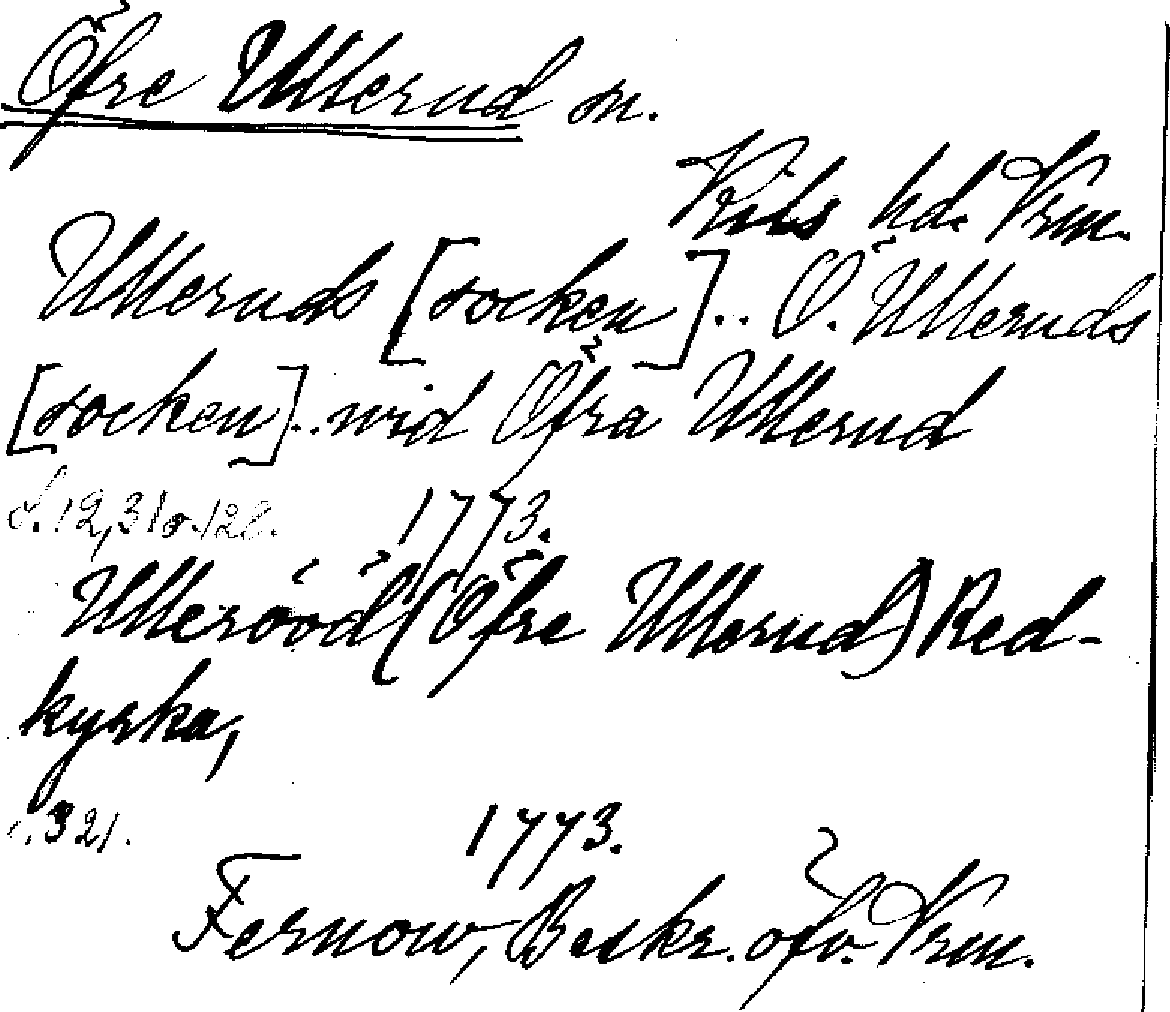 Öfre Ullerud sn.
Kils hd. Vrm.
Ulleruds [socken].. Ö. Ulleruds
[socken]..wid Öfra Ullerud
s. 12, 31 o. 128. 1773.
Ulleróód (Öfre Ullerud) Red-
kyrka,
s. 321. 1773.
Fernow, Beskr. öfv. Vrm.